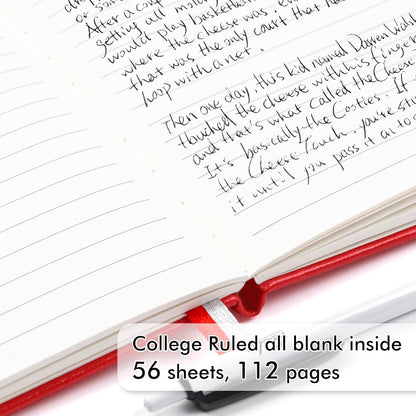 After a coup
getting all mold
would play basketba
where the cheese was, eve
that was the only court that ha
hoop with a net.
Then one day, this kid named Darren Wal
touched the cheese with his finger
and that's what called the Cheese
It's basically the Cooties. If
the Cheese Touch, you're st
it until you pass it on to
College Ruled all blank inside
56 sheets, 112 pages